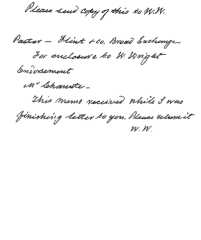 Please send copy of this to W.W.
Pastor — Flint & Co. Broad Exchange
For enclosure to W Wright
Endorsement
Mr Chanute —
This memo received while I was
finishing letter to you. Please return it
W. W.